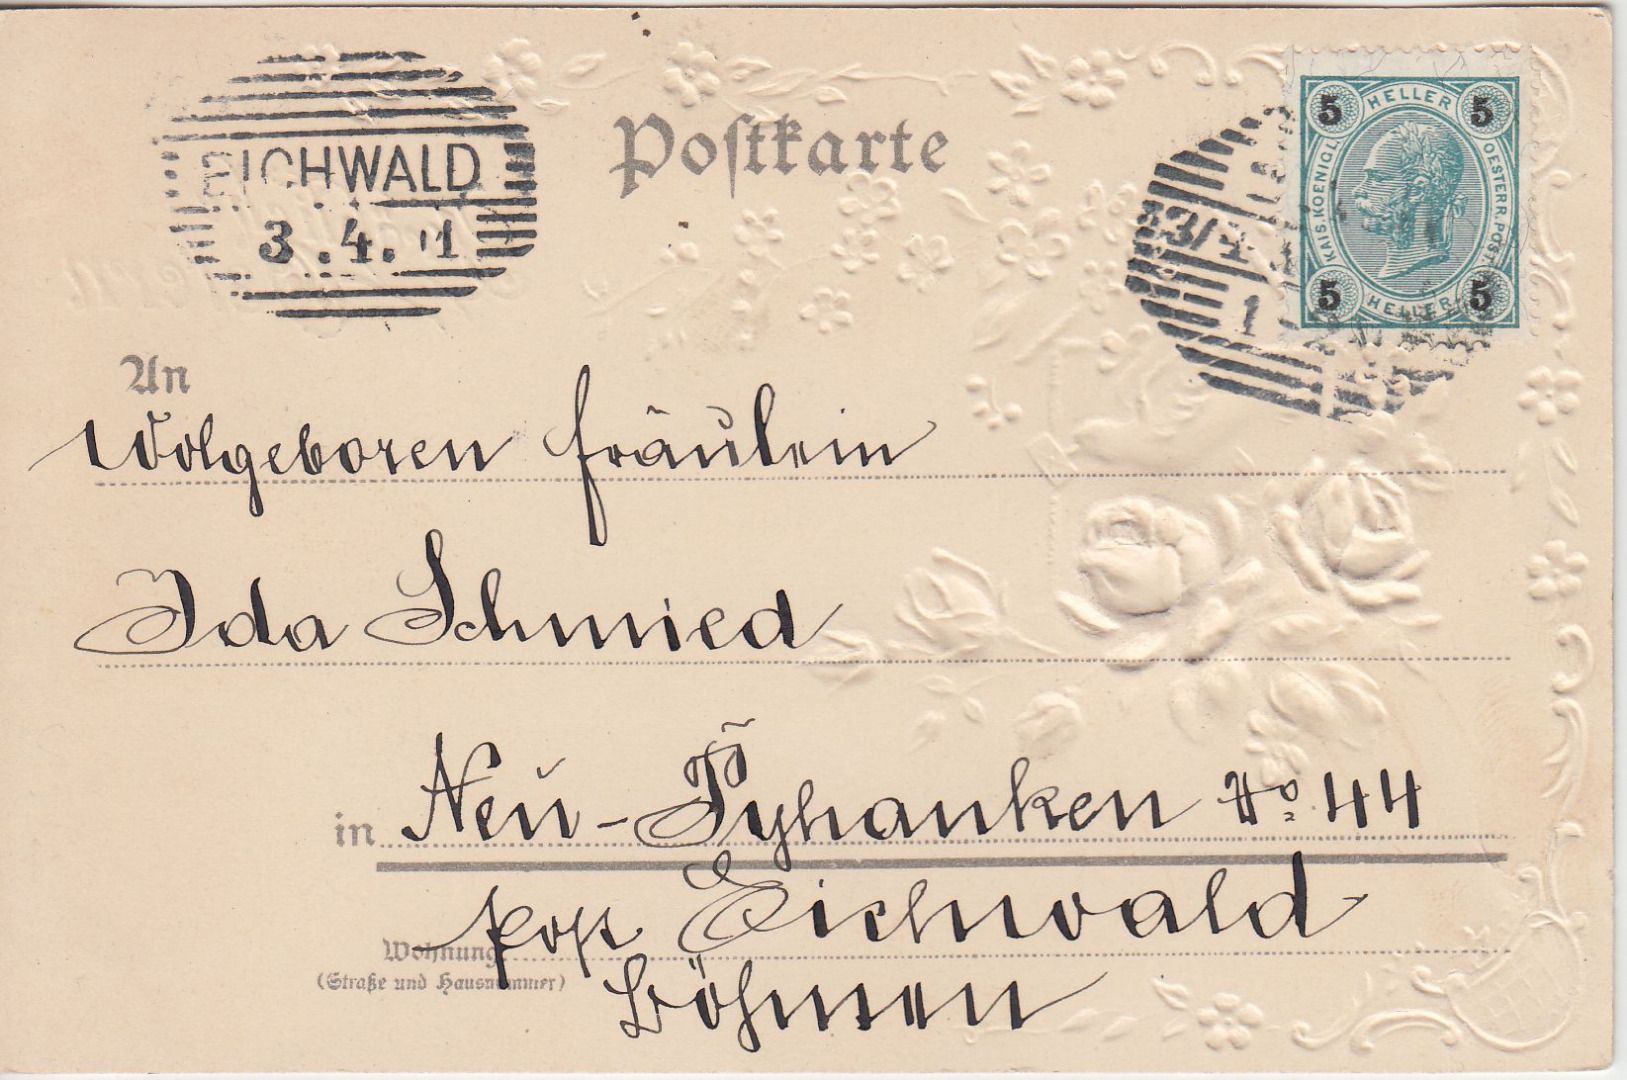 EICHWALD
3.4.01
Postkarte
5 HELLER 5
KAIS. KOENIGL. OESTERR. POST.
5 HELLER 5
3/4
1
An
Wolgeboren Fräulein
Ida Schmied
in Neu-Pyhanken No. 44
post Eichwald
Wohnung
(Straße und Hausnummer)
Böhmen